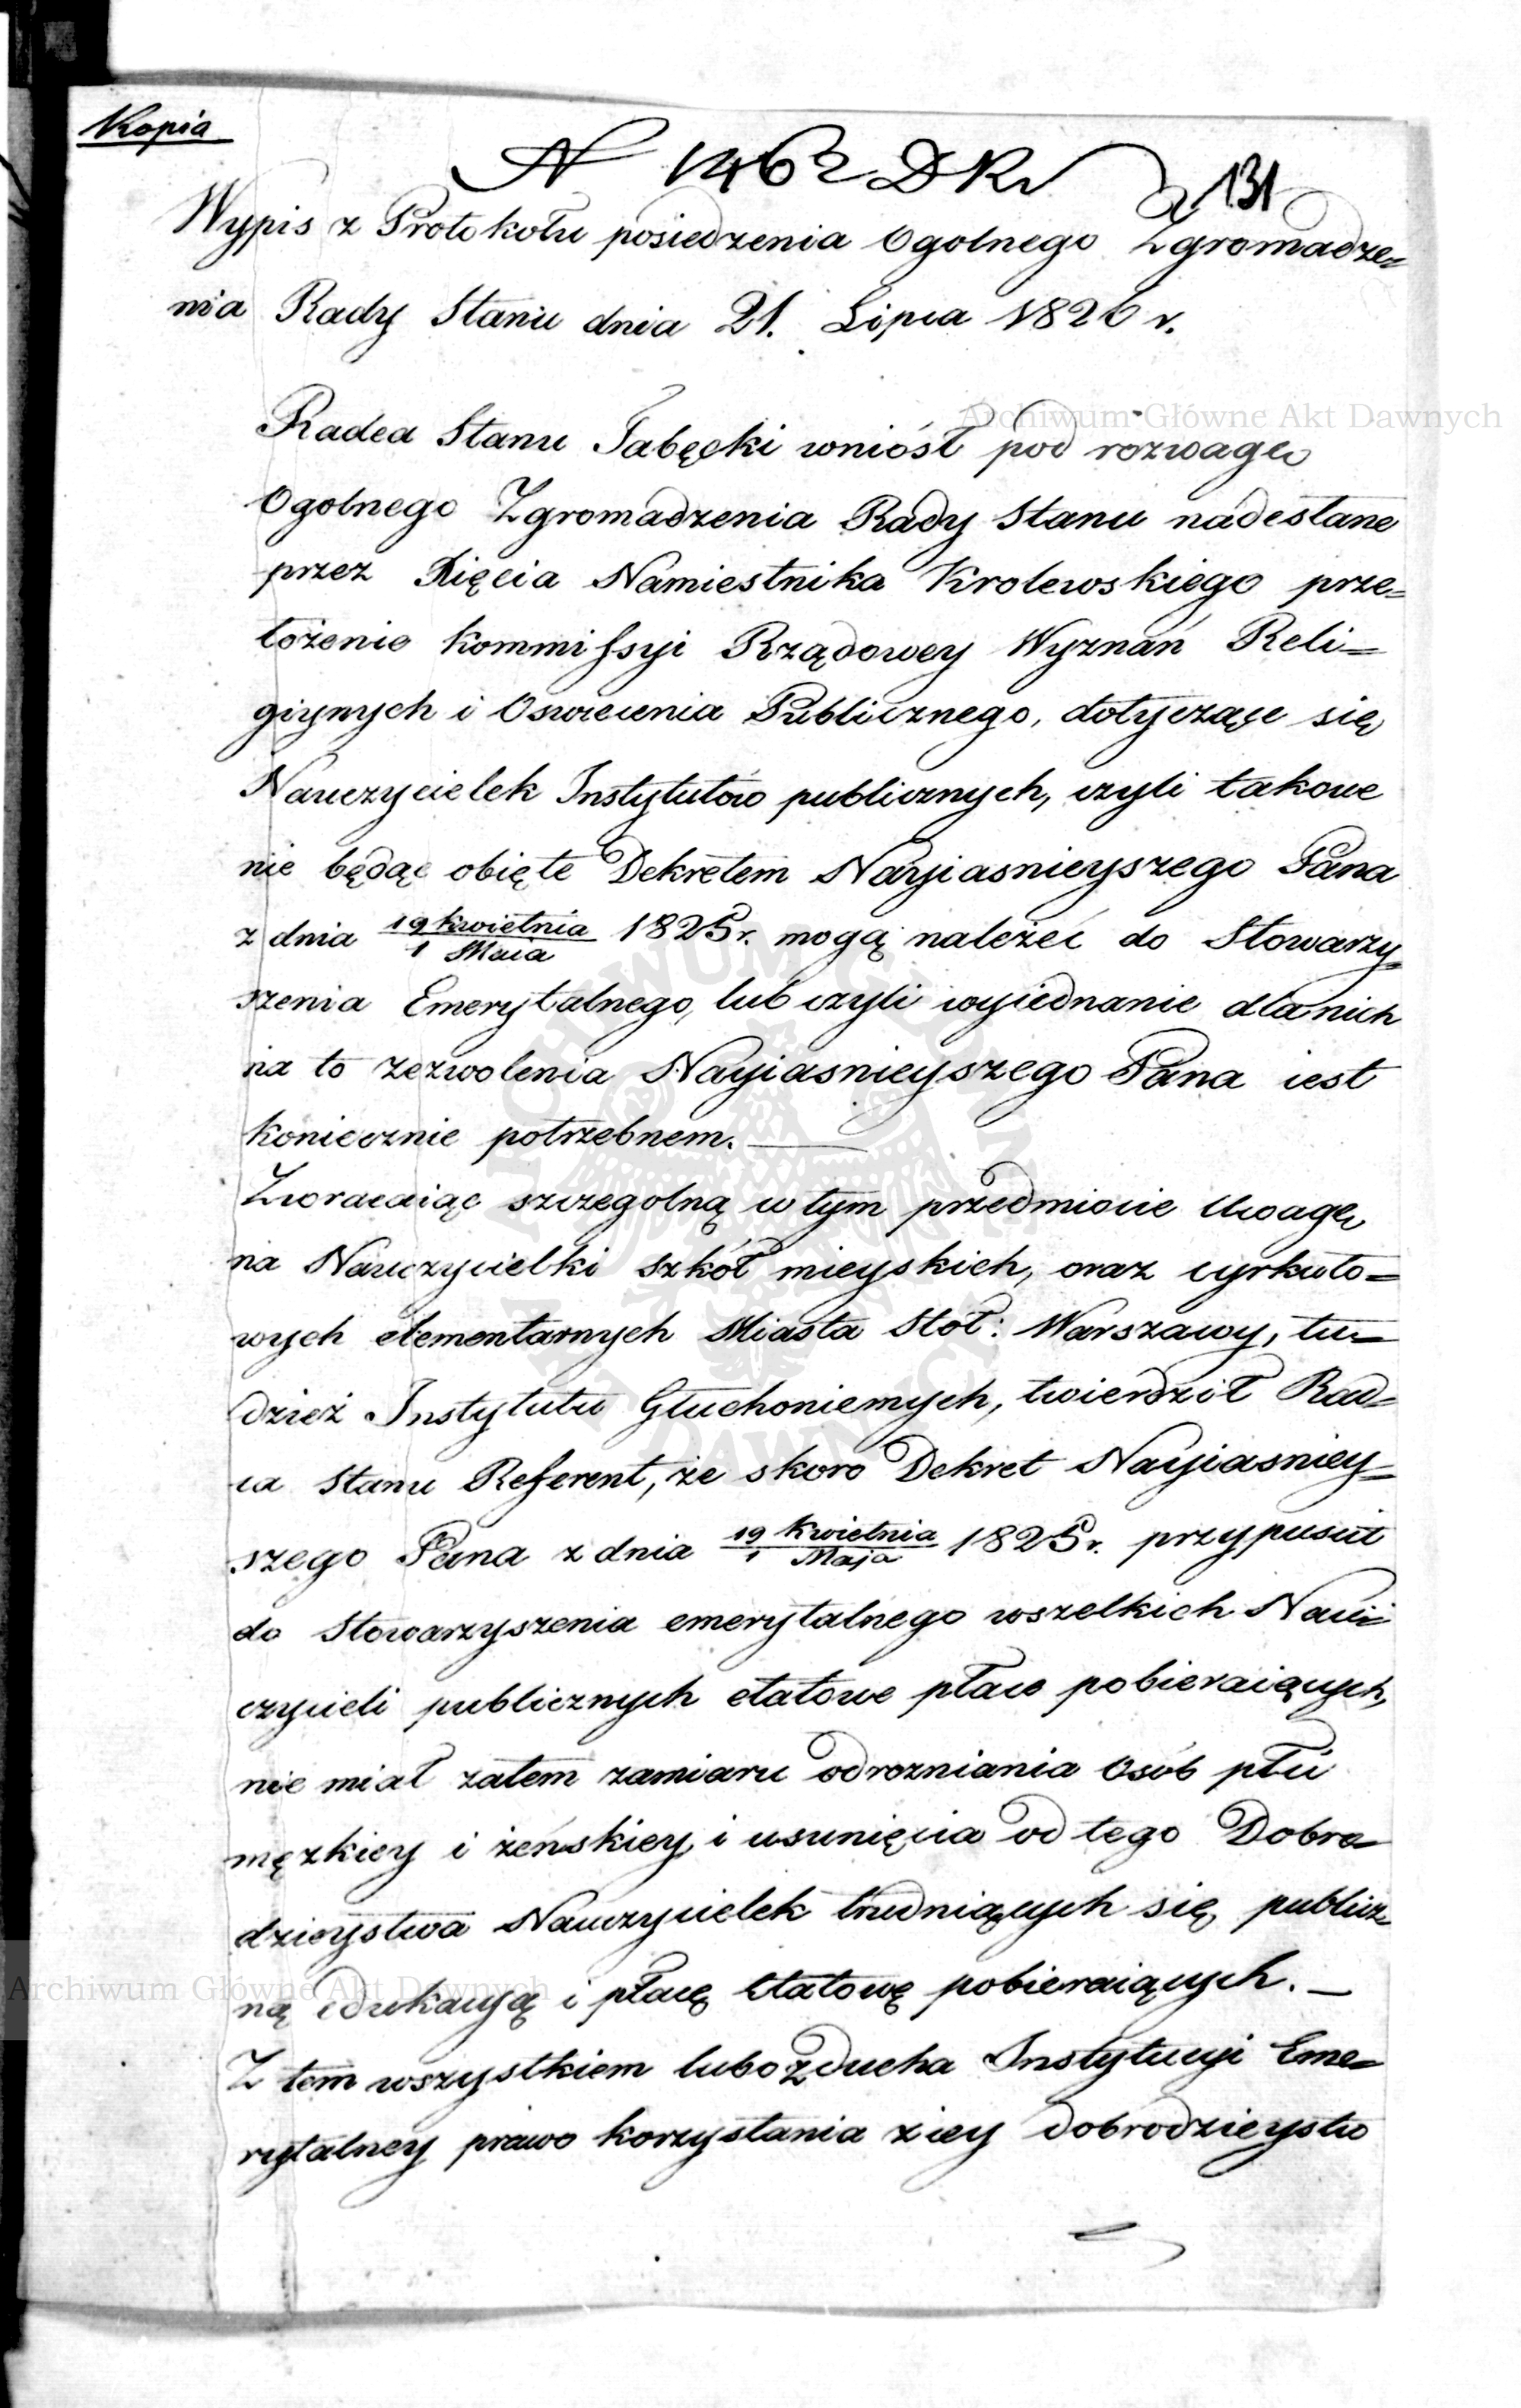 Kopia
N 1462 DR
131
Wypis z Protokołu posiedzenia Ogolnego Zgromadze=
nia Rady Stanu dnia 21. Lipca 1826 r.
Archiwum Główne Akt Dawnych
Radca Stanu Tabęcki wniósł pod rozwagę
Ogolnego Zgromadzenia Rady Stanu nadesłane
przez Xięcia Namiestnika Krolewskiego prze=
łożenie Kommissyi Rządowey Wyznań Reli=
giynych i Oswiecenia Publicznego, dotyczące się
Nauczycielek Instytutów publicznych, czyli takowe
nie będąc obięte Dekretem Nayiasnieyszego Pana
z dnia 19 Kwietnia / 1 Maia 1825 r. mogą należeć do Stowarzy=
szenia Emerytalnego, lub czyli wyiednanie dla nich
na to zezwolenia Nayiasnieyszego Pana iest
koniecznie potrzebnem.—
Zwracaiąc szczegolną w tym przedmiocie Uwagę
na Nauczycielki szkół mieyskich, oraz cyrkuło=
wych elementarnych Miasta Stoł: Warszawy, tu=
dzież Instytutu Głuchoniemych, twierdził Rad=
ca Stanu Referent, że skoro Dekret Nayiasniey=
szego Pana z dnia 19 Kwietnia / 1 Maja 1825 r. przypuscił
do Stowarzyszenia emerytalnego wszelkich Nau=
czycieli publicznych etatowe płace pobieraiących,
nie miał zatem zamiaru odrozniania Osób płci
męzkiey i żeńskiey, i usunięcia od tego Dobro=
dzieystwa Nauczycielek trudniących się publicz=
ną edukacyą i płacę etatowę pobieraiących.—
Archiwum Główne Akt Dawnych
Z tem wszystkiem lubo z ducha Instytucyi Eme=
rytalney prawo korzystania z iey dobrodzieystw
ARCHIWUM GŁÓWNE AKT DAWNYCH